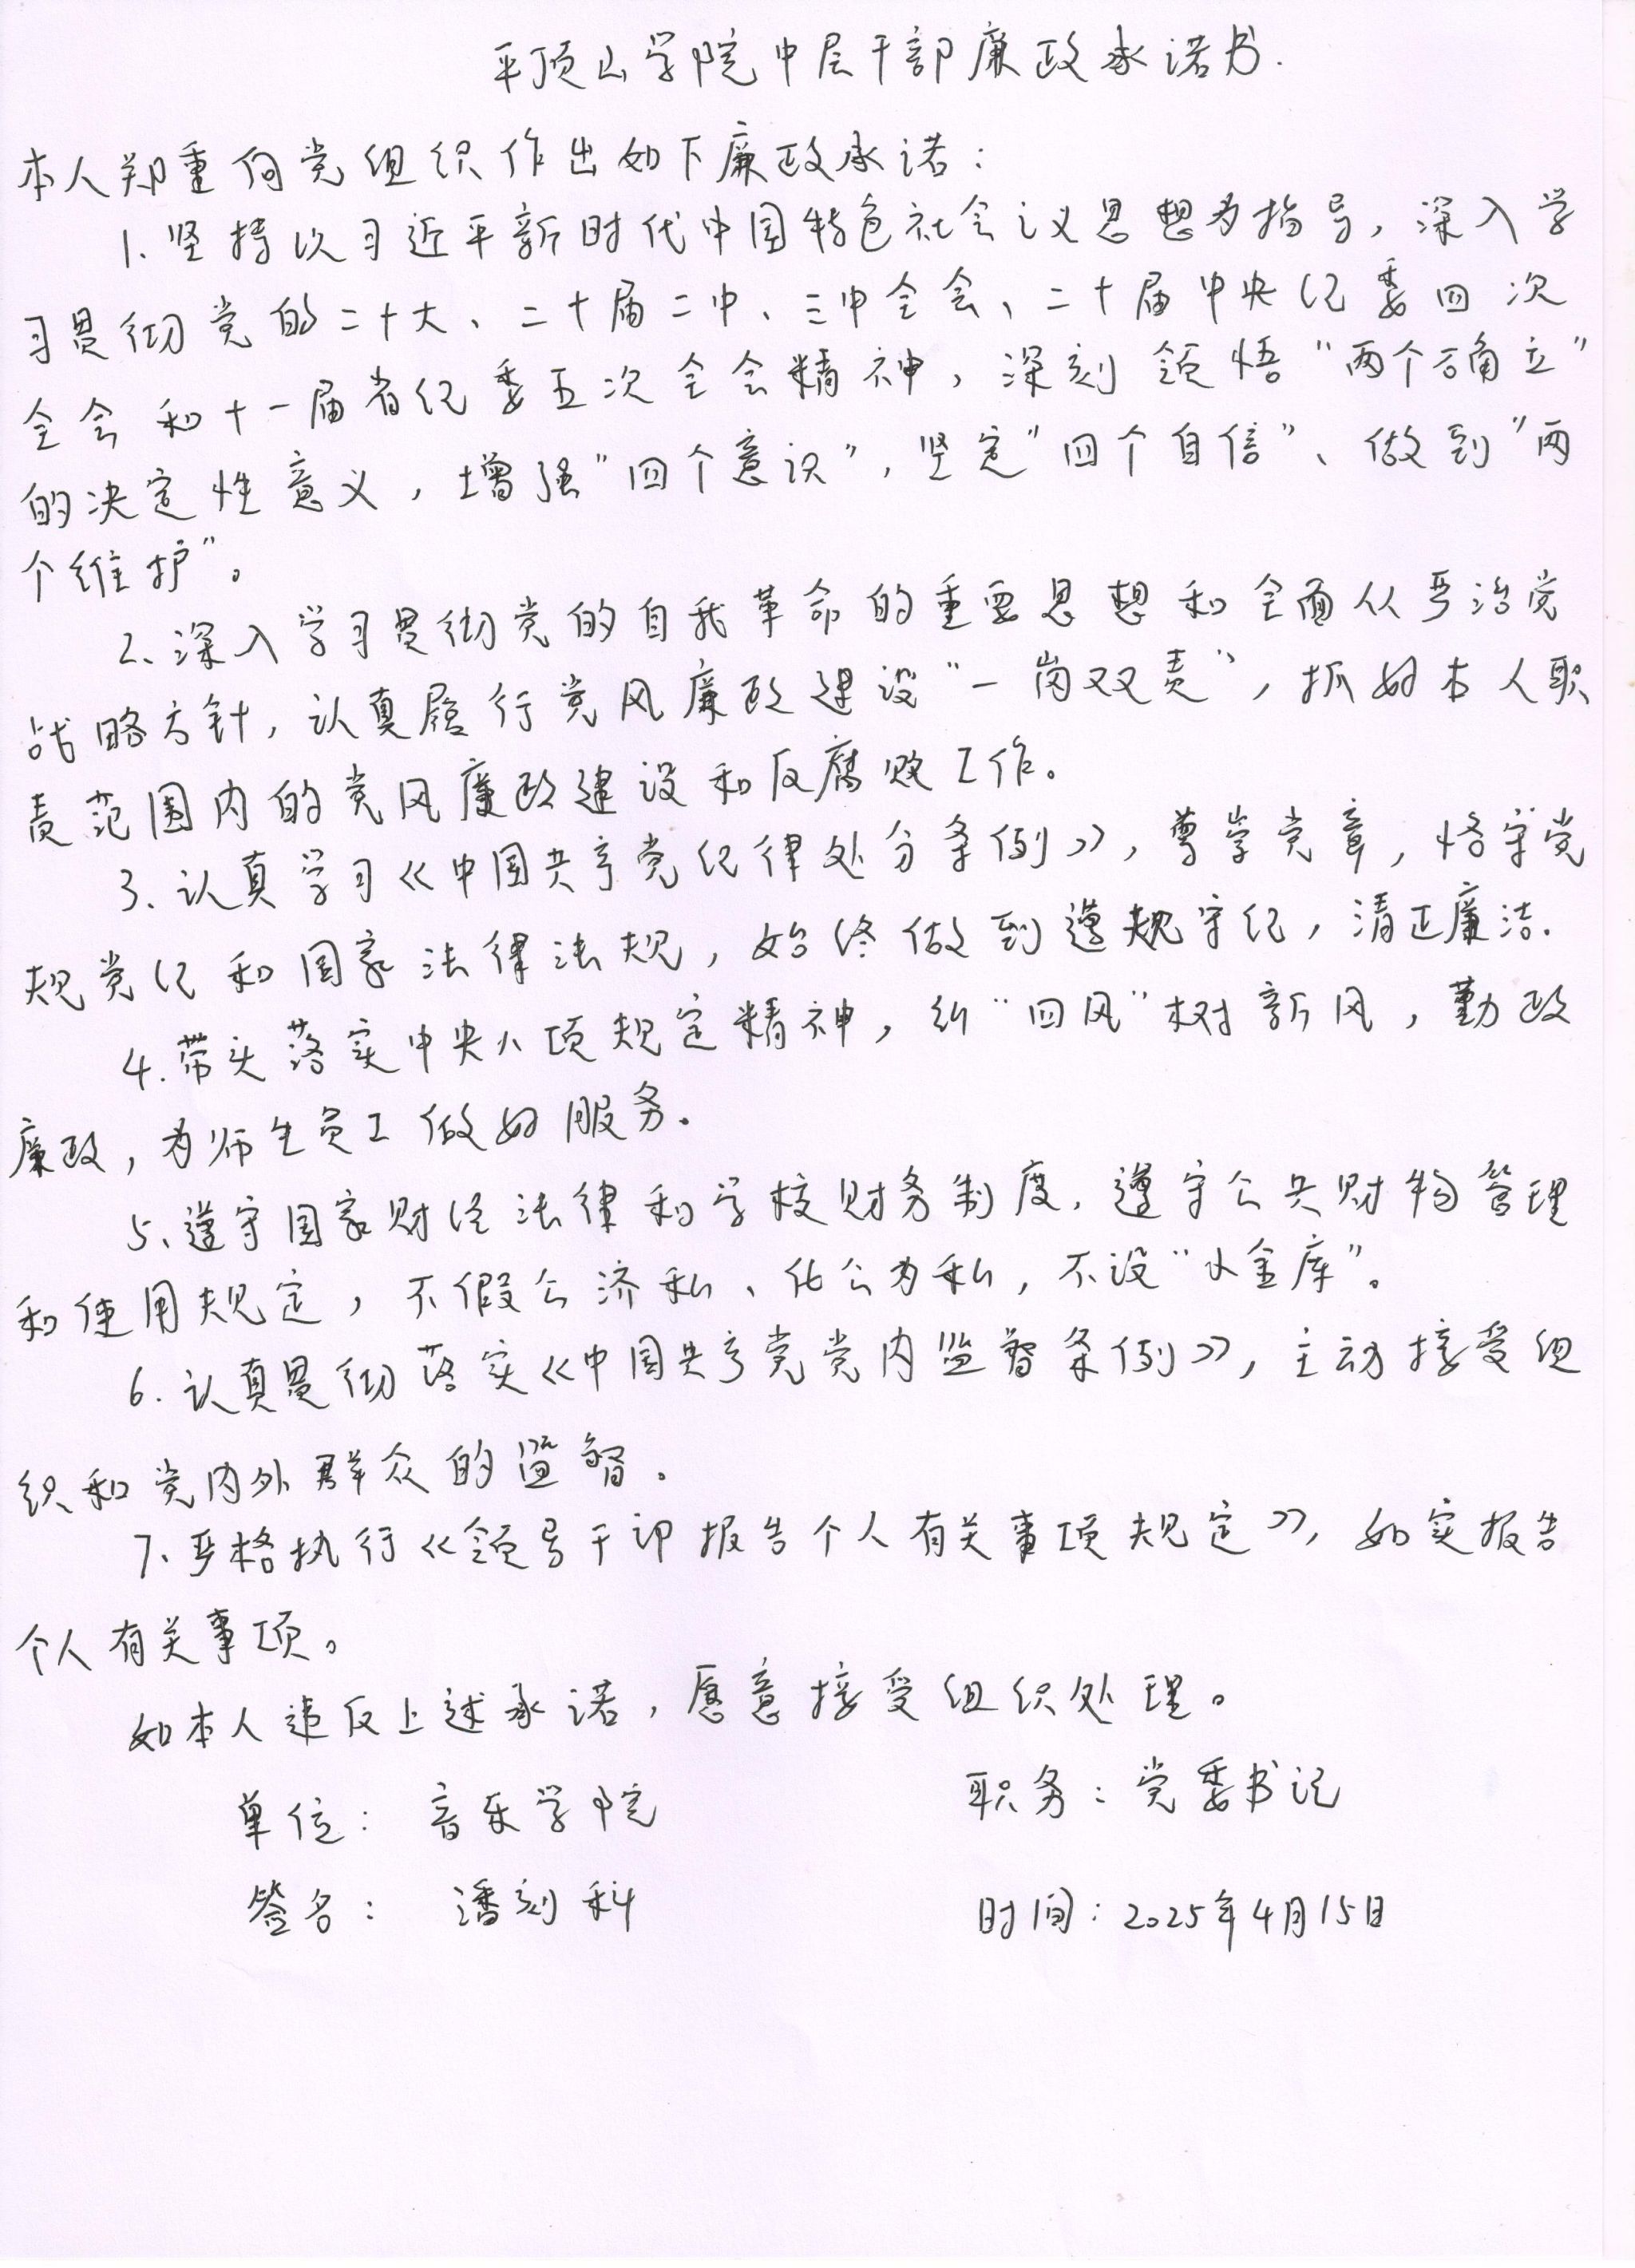 平顶山学院中层干部廉政承诺书.
本人郑重向党组织作出如下廉政承诺：
1、坚持以习近平新时代中国特色社会主义思想为指导，深入学
习贯彻党的二十大、二十届二中、三中全会、二十届中央纪委四次
全会和十一届省纪委五次全会精神，深刻领悟“两个确立”
的决定性意义，增强“四个意识”，坚定“四个自信”、做到“两
个维护”。
2、深入学习贯彻党的自我革命的重要思想和全面从严治党
战略方针，认真履行党风廉政建设“一岗双责”，抓好本人职
责范围内的党风廉政建设和反腐败工作。
3、认真学习《中国共产党纪律处分条例》，尊崇党章，恪守党
规党纪和国家法律法规，始终做到遵规守纪，清正廉洁.
4.带头落实中央八项规定精神，纠“四风”树新风，勤政
廉政，为师生员工做好服务。
5、遵守国家财经法律和学校财务制度，遵守公共财物管理
和使用规定，不假公济私、化公为私，不设“小金库”。
6.认真贯彻落实《中国共产党党内监督条例》，主动接受组
织和党内外群众的监督。
7、严格执行《领导干部报告个人有关事项规定》，如实报告
个人有关事项。
如本人违反上述承诺，愿意接受组织处理。
单位：音乐学院 职务：党委书记
签名：潘刻科 时间：2025年4月15日